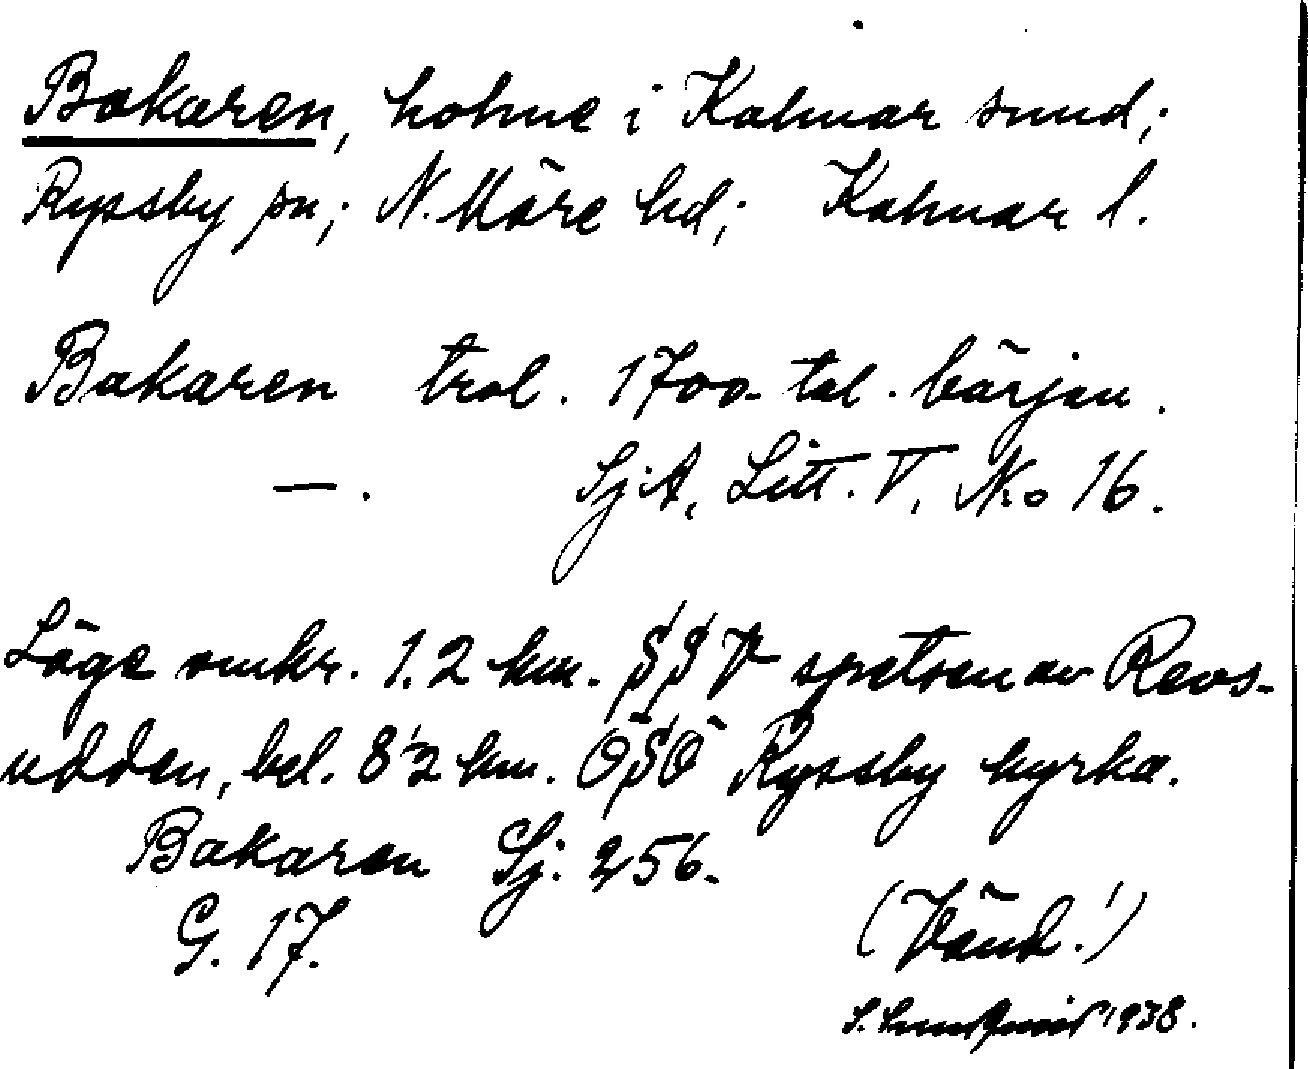 Bakaren, holme i Kalmar sund;
Ryssby sn; N. Möre hd; Kalmar l.
Bakaren trol. 1700-tal. början.
—. SjA, Litt. V, No 16.
Läge omkr. 1.2 km. SSV spetsen av Revs-
udden, bel. 8 1/2 km. ÖSÖ Ryssby kyrka.
Bakaren Sj. 256.
G. 17.
(Vänd!)
S. Lundqvist 1938.